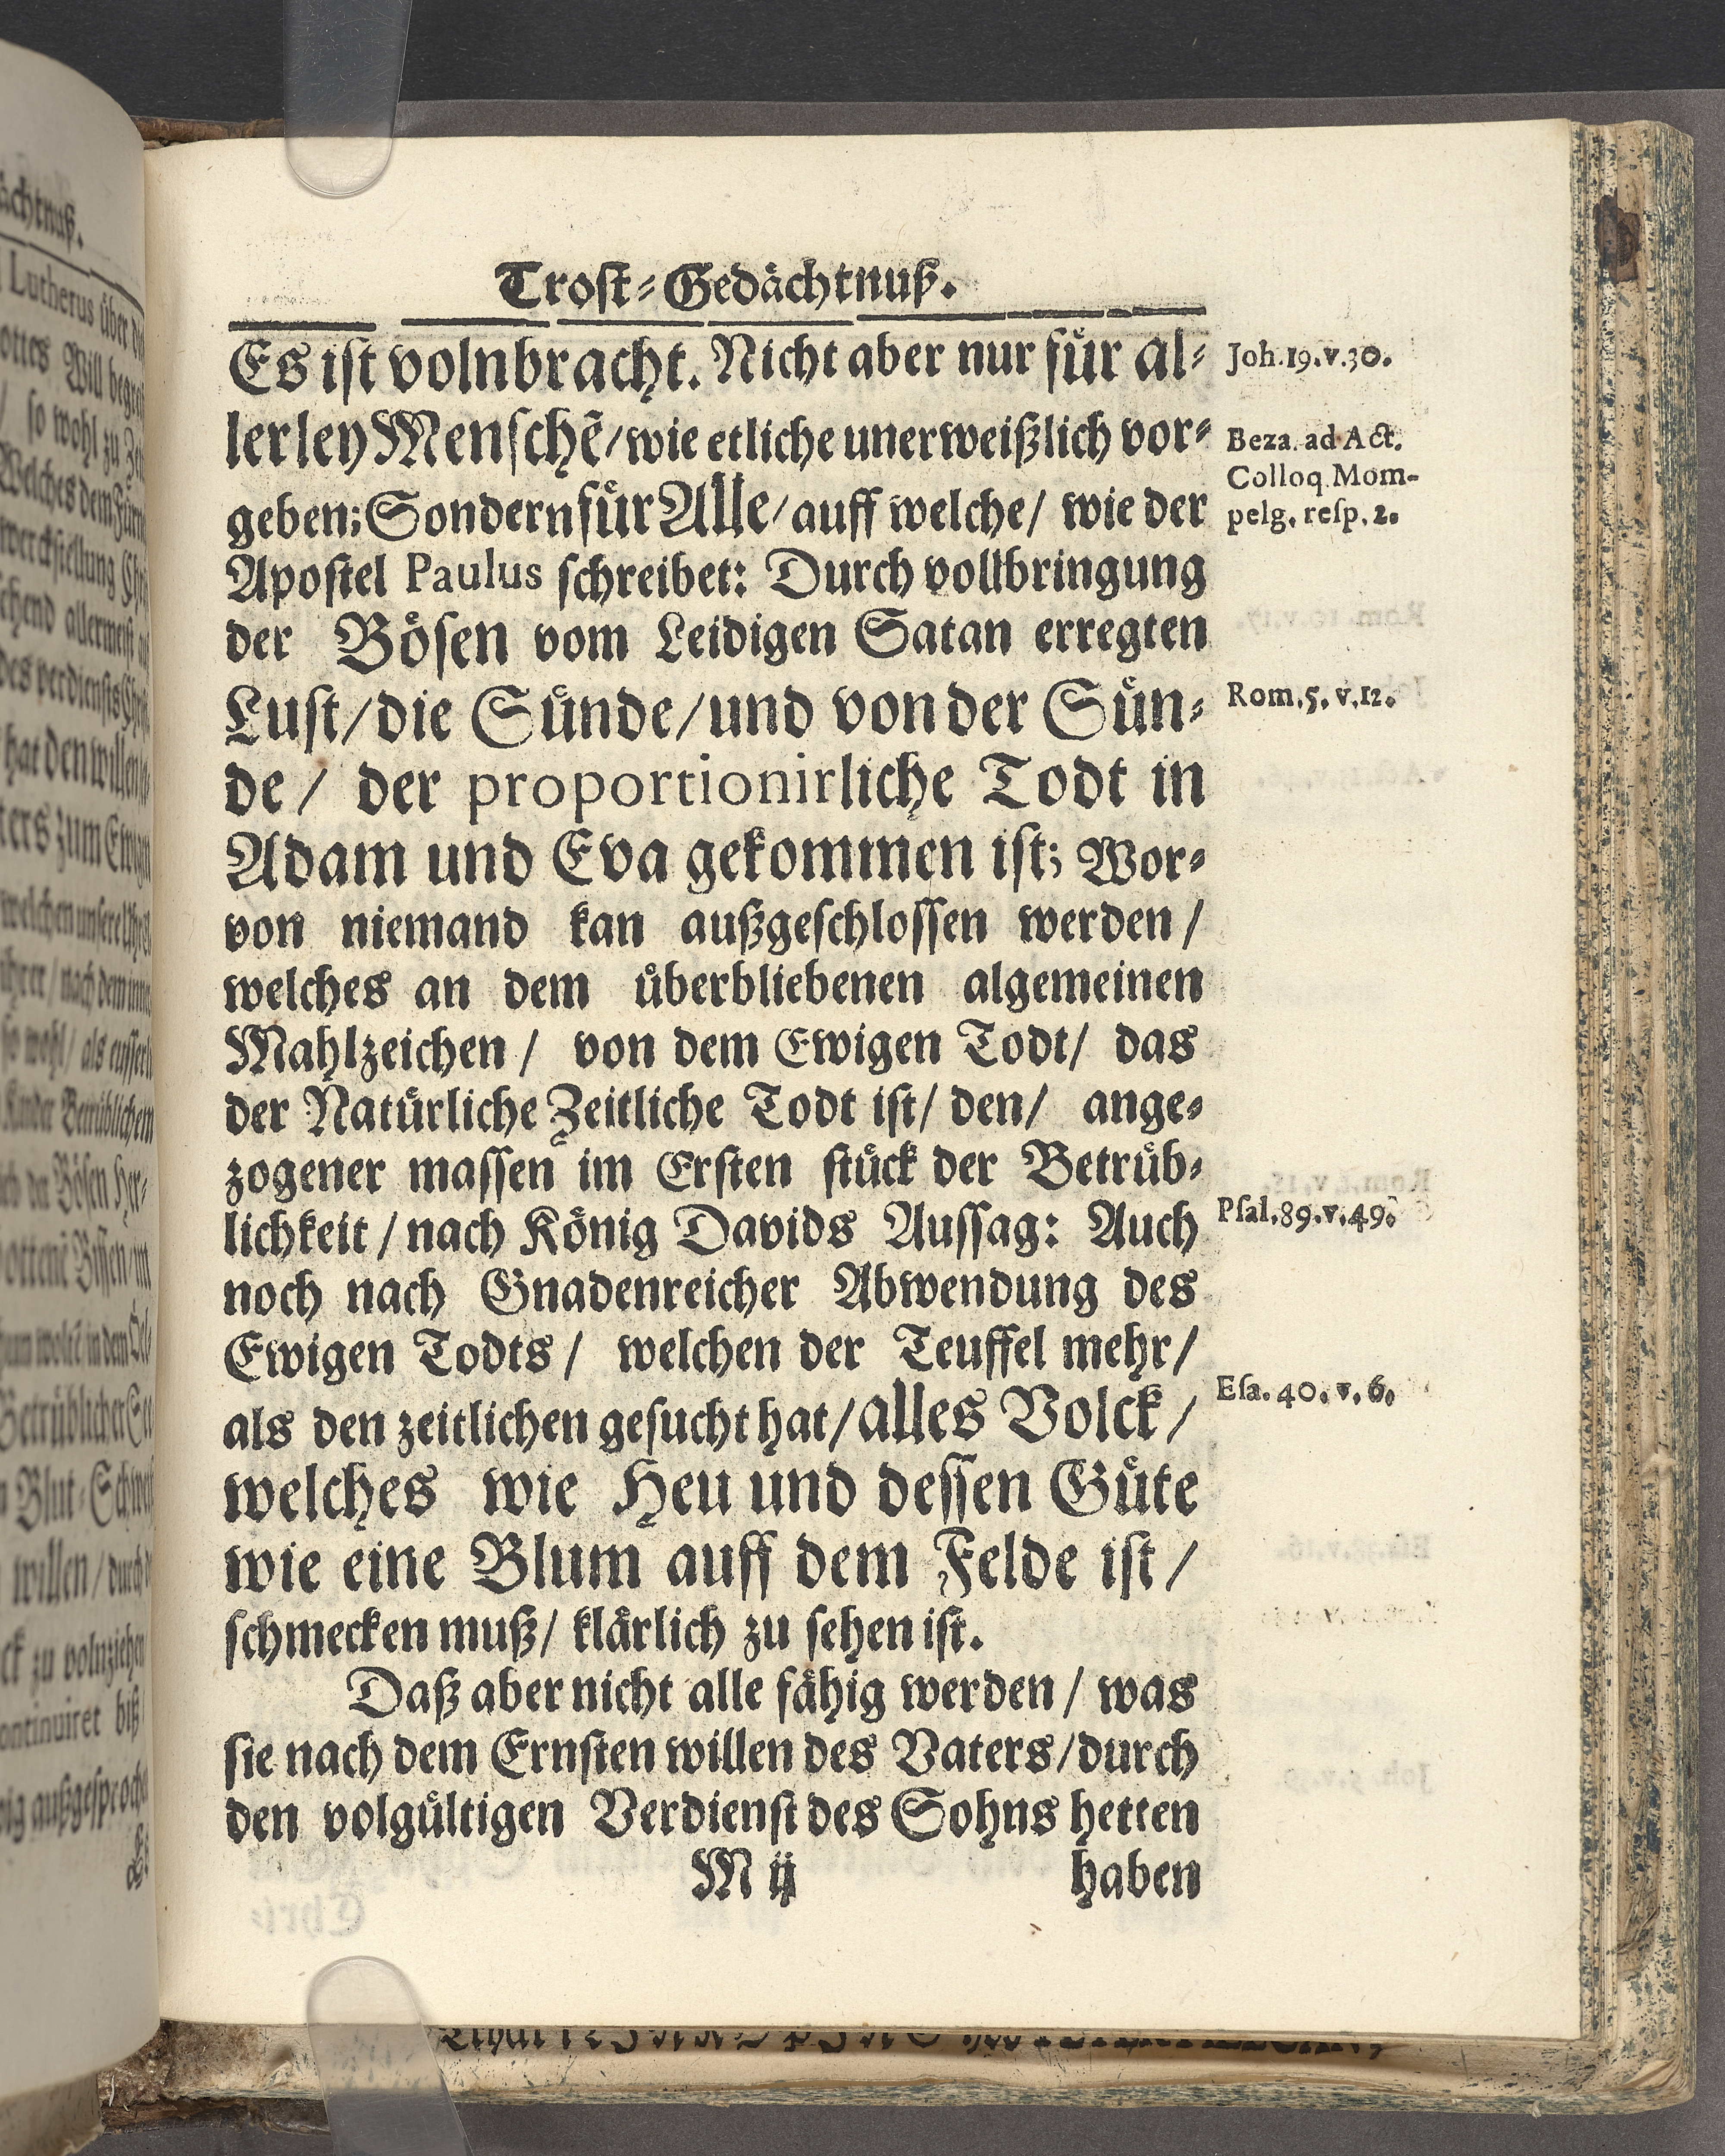 Trost-Gedächtnuß.
Es ist volnbracht. Nicht aber nur für al-
lerley Menschẽ/wie etliche unerweißlich vor-
geben; Sondern für Alle/ auff welche/ wie der
Apostel Paulus schreibet: Durch vollbringung
der Bösen vom Leidigen Satan erregten
Lust/die Sünde/und von der Sün-
de/ der proportionirliche Todt in
Adam und Eva gekommen ist; Wor-
von niemand kan außgeschlossen werden/
welches an dem überbliebenen algemeinen
Mahlzeichen/ von dem Ewigen Todt/ das
der Natürliche Zeitliche Todt ist/ den/ ange-
zogener massen im Ersten stück der Betrüb-
lichkeit/nach König Davids Aussag: Auch
noch nach Gnadenreicher Abwendung des
Ewigen Todts/ welchen der Teuffel mehr/
als den zeitlichen gesucht hat/alles Volck/
welches wie Heu und dessen Güte
wie eine Blum auff dem Felde ist/
schmecken muß/ klärlich zu sehen ist.
Daß aber nicht alle fähig werden/ was
sie nach dem Ernsten willen des Vaters/durch
den volgültigen Verdienst des Sohns hetten
M ij haben
Joh.19.v.30.
Beza. ad Act.
Colloq Mom-
pelg. resp. 2.
Rom.5.v.12.
Psal.89.v.49.
Esa. 40. v. 6.